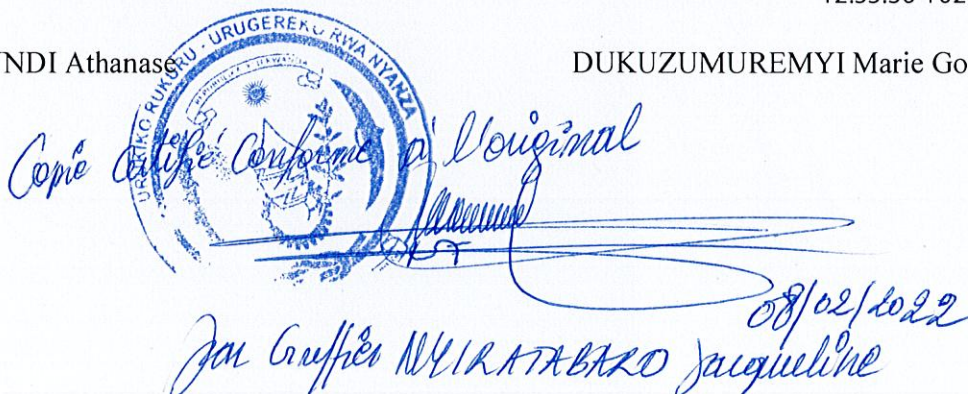 NDI Athanase DUKUZUMUREMYI Marie Go
URUKIKO RUKURU - URUGEREKO RWA NYANZA
Copie Certifié Conforme à l'original
08/02/2022
Par Greffier NYIRATABARO Jacqueline